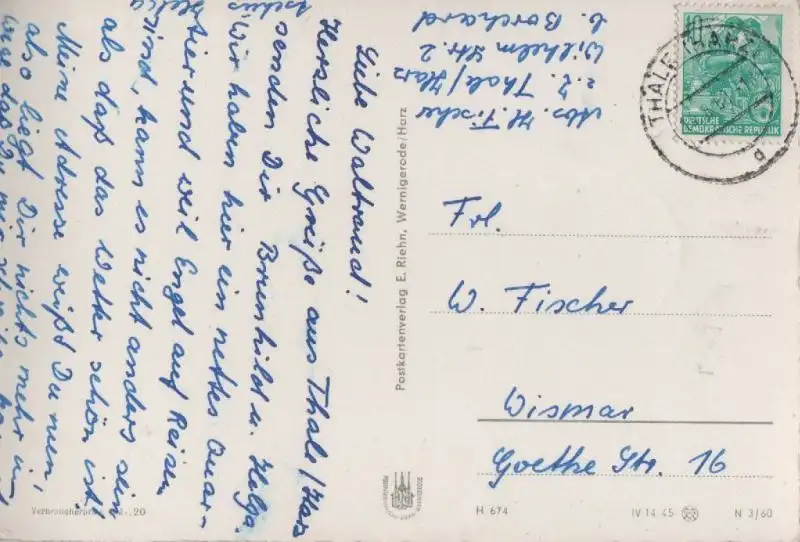 Liebe Waltraud!
Herzliche Grüße aus Thale/Harz
senden Dir Brunhild u. Helga
Wir haben hier ein nettes Quar-
tier und weil Engel auf Reisen
sind, kann es nicht anders sein
als daß das Wetter schön ist!
Meine Adresse weißt Du nun,
also liegt Dir nichts mehr im
Abs. H. Fischer
z. Z. Thale/Harz
Wilhelm Str. 2
b. Borchard
10
DEUTSCHE
DEMOKRATISCHE REPUBLIK
THALE (HARZ)
a
Frl.
W. Fischer
Wismar
Goethe Str. 16
Postkartenverlag E. Riehn, Wernigerode/Harz
Verbraucherpreis
-,20
H 674
IV 14 45
N 3/60